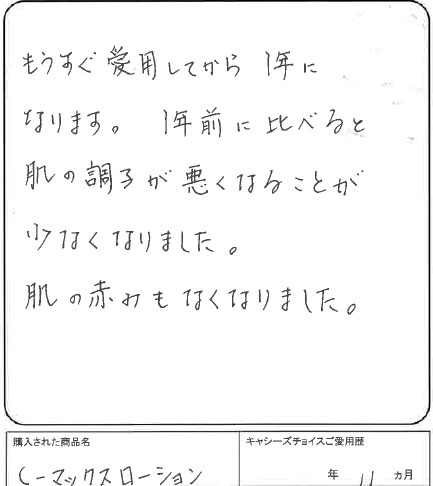 もうすぐ愛用してから1年に
なります。1年前に比べると
肌の調子が悪くなることが
少なくなりました。
肌の赤みもなくなりました。
購入された商品名
キャシーズチョイスご愛用歴
C-マックスローション
年 11 ヵ月